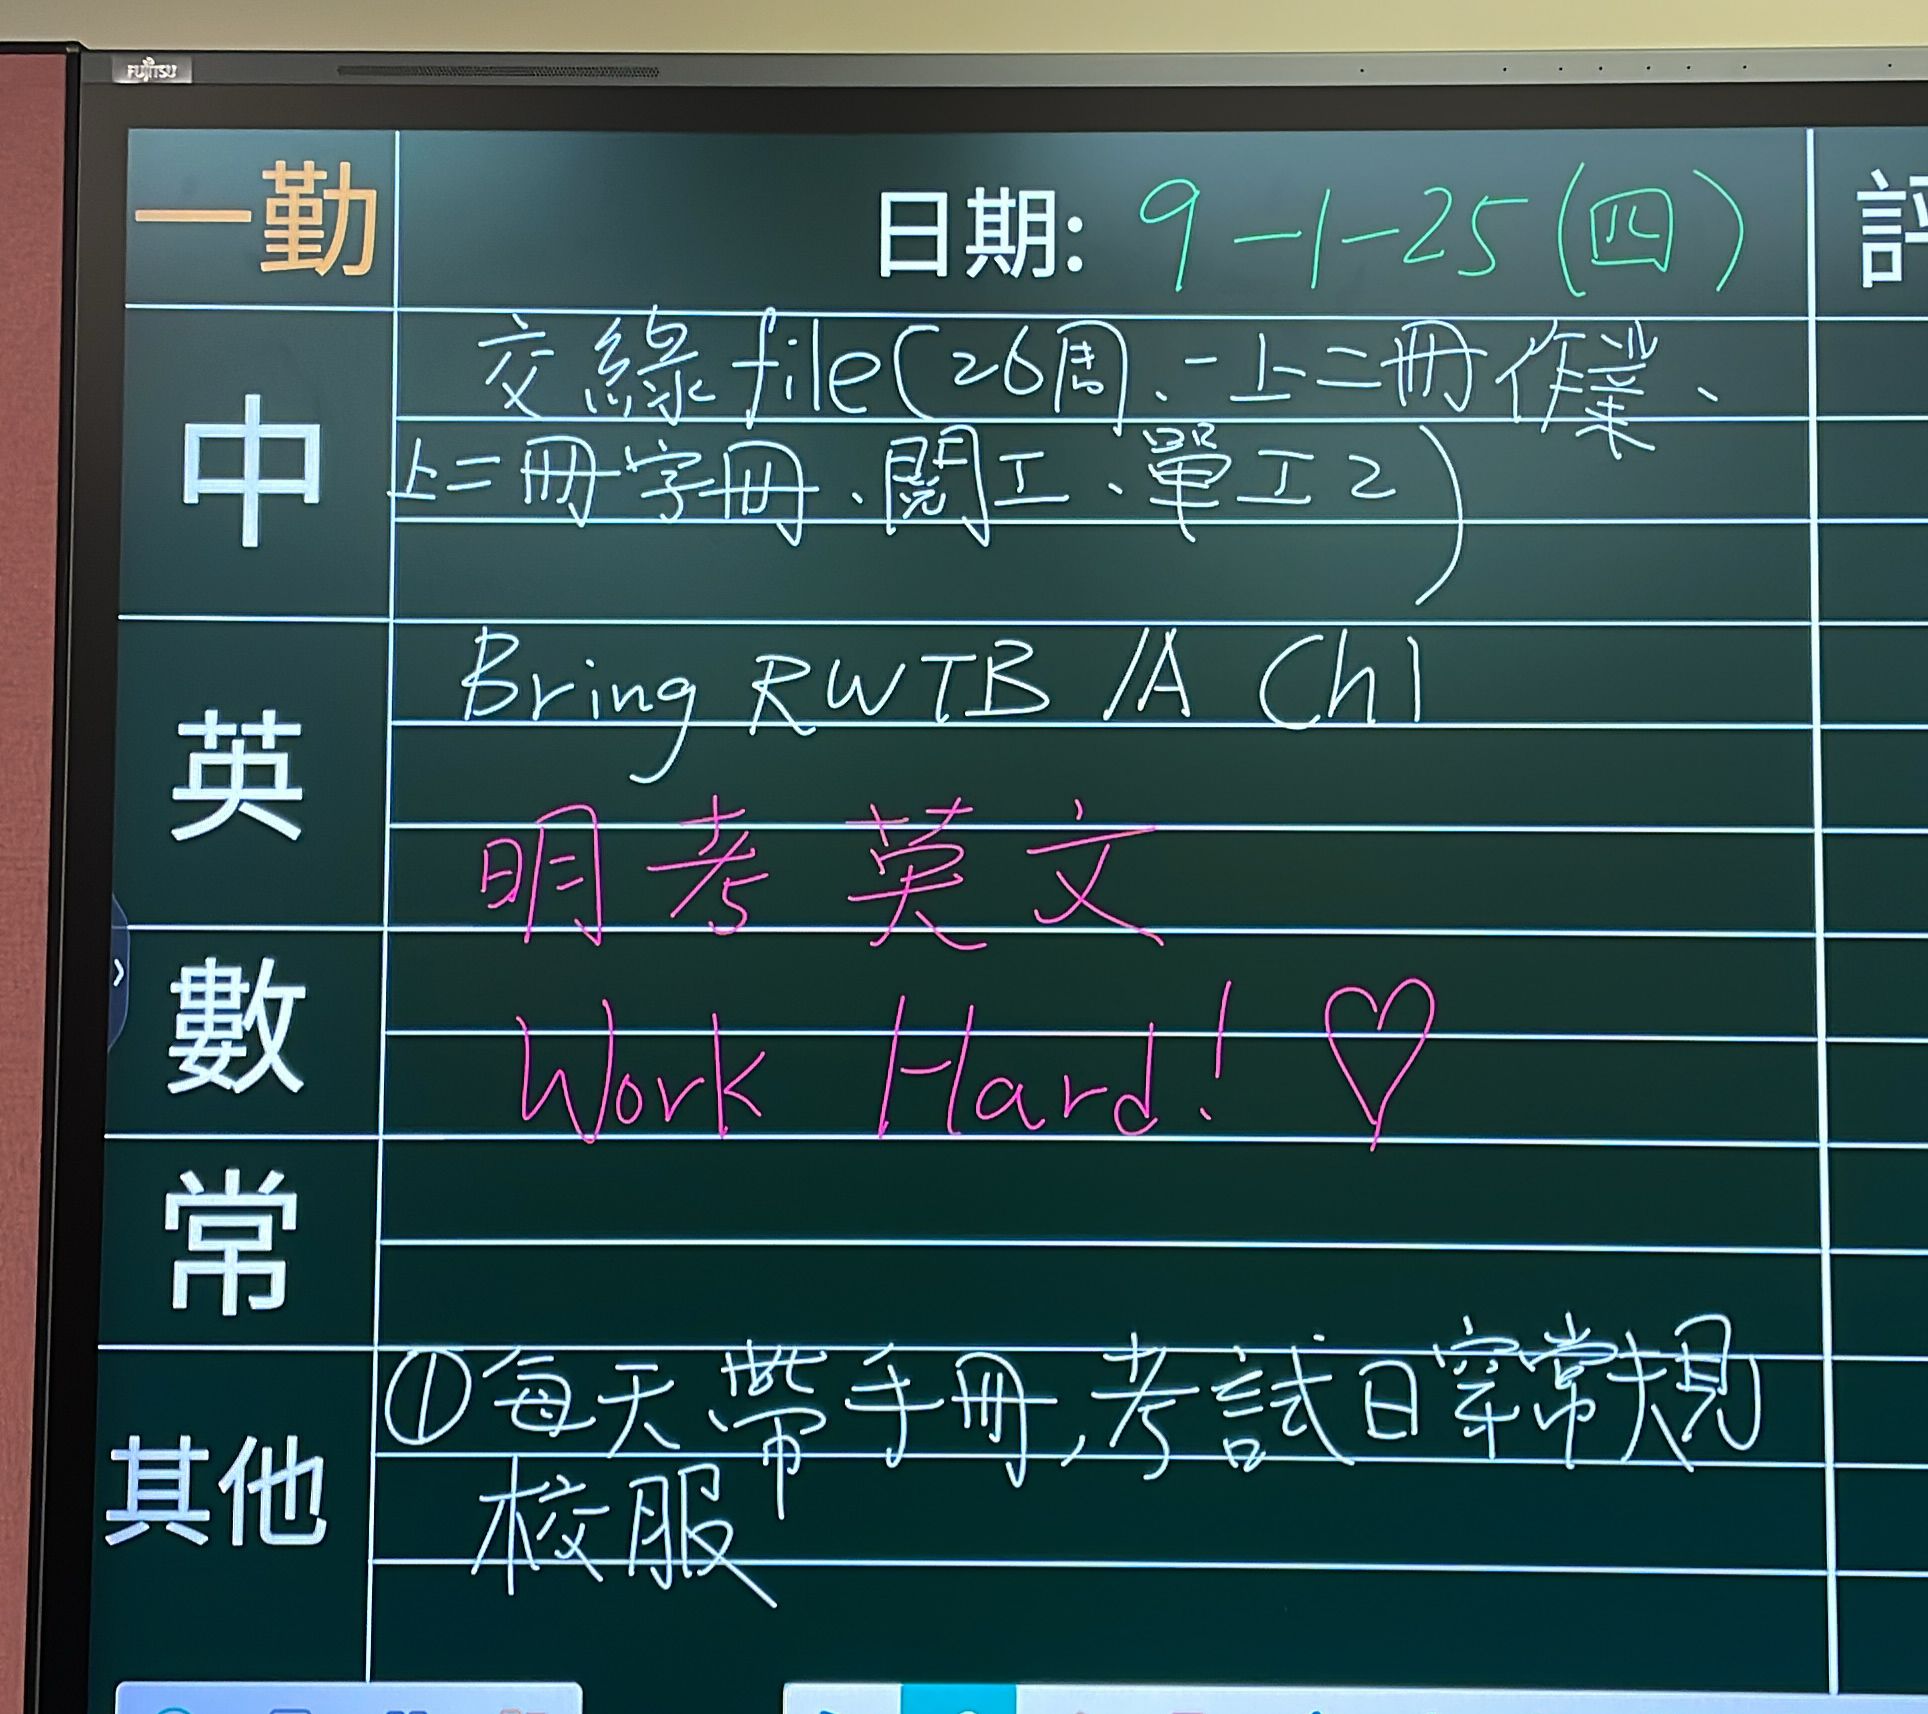 FUJITSU
一勤
日期: 9-1-25(四)
中
交綠file(26周、一上二冊作業、
上二冊字冊、閱工、單工2)
英
Bring RWTB 1A Ch1
明考英文
數
Work Hard! ♡
常
其他
①每天帶手冊,考試日穿常規
校服